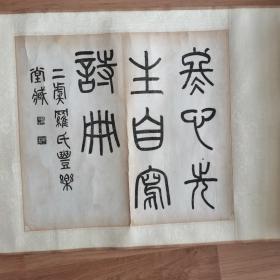 冬心先
生自寫
詩冊
二虞羅氏豐樂
堂藏